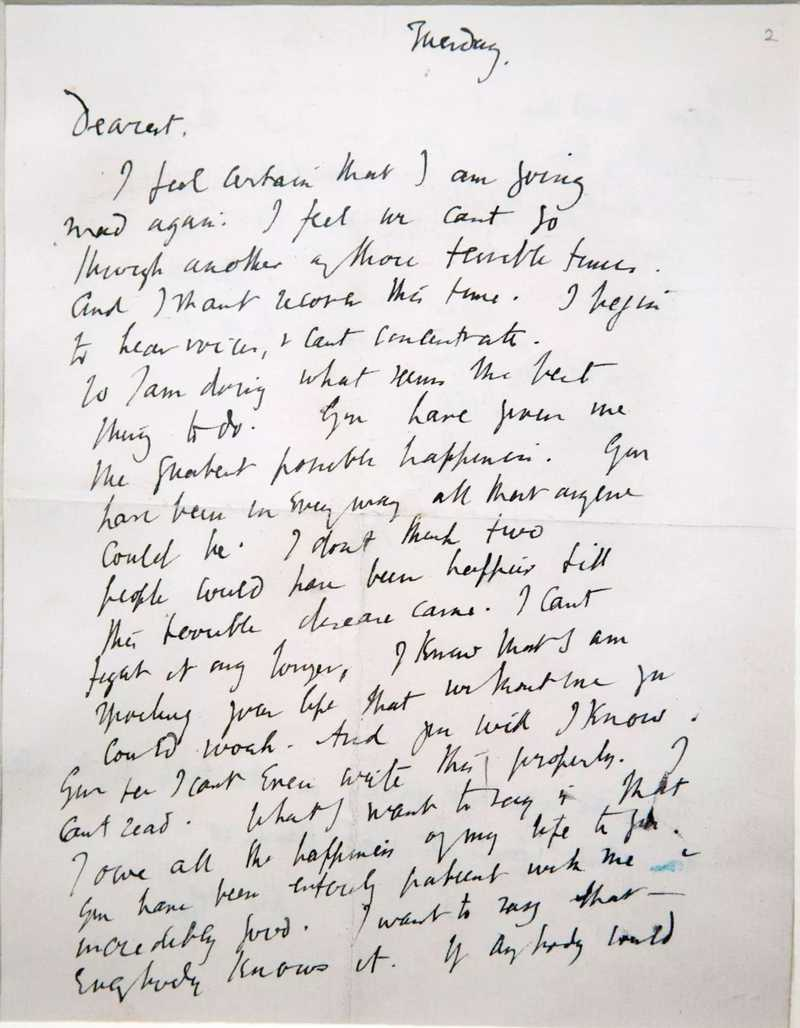 2
Tuesday.
Dearest.
I feel certain that I am going
mad again. I feel we cant go
through another of those terrible times.
And I shant recover this time. I begin
to hear voices, & cant concentrate.
So I am doing what seems the best
thing to do. You have given me
the greatest possible happiness. You
have been in every way all that anyone
could be. I dont think two
people could have been happier till
this terrible disease came. I cant
fight it any longer, I know that I am
spoiling your life that without me you
could work. And you will I know.
You see I cant even write this properly. I
cant read. What I want to say is that
I owe all the happiness of my life to you.
You have been entirely patient with me &
incredibly good. I want to say that —
everybody knows it. If anybody could